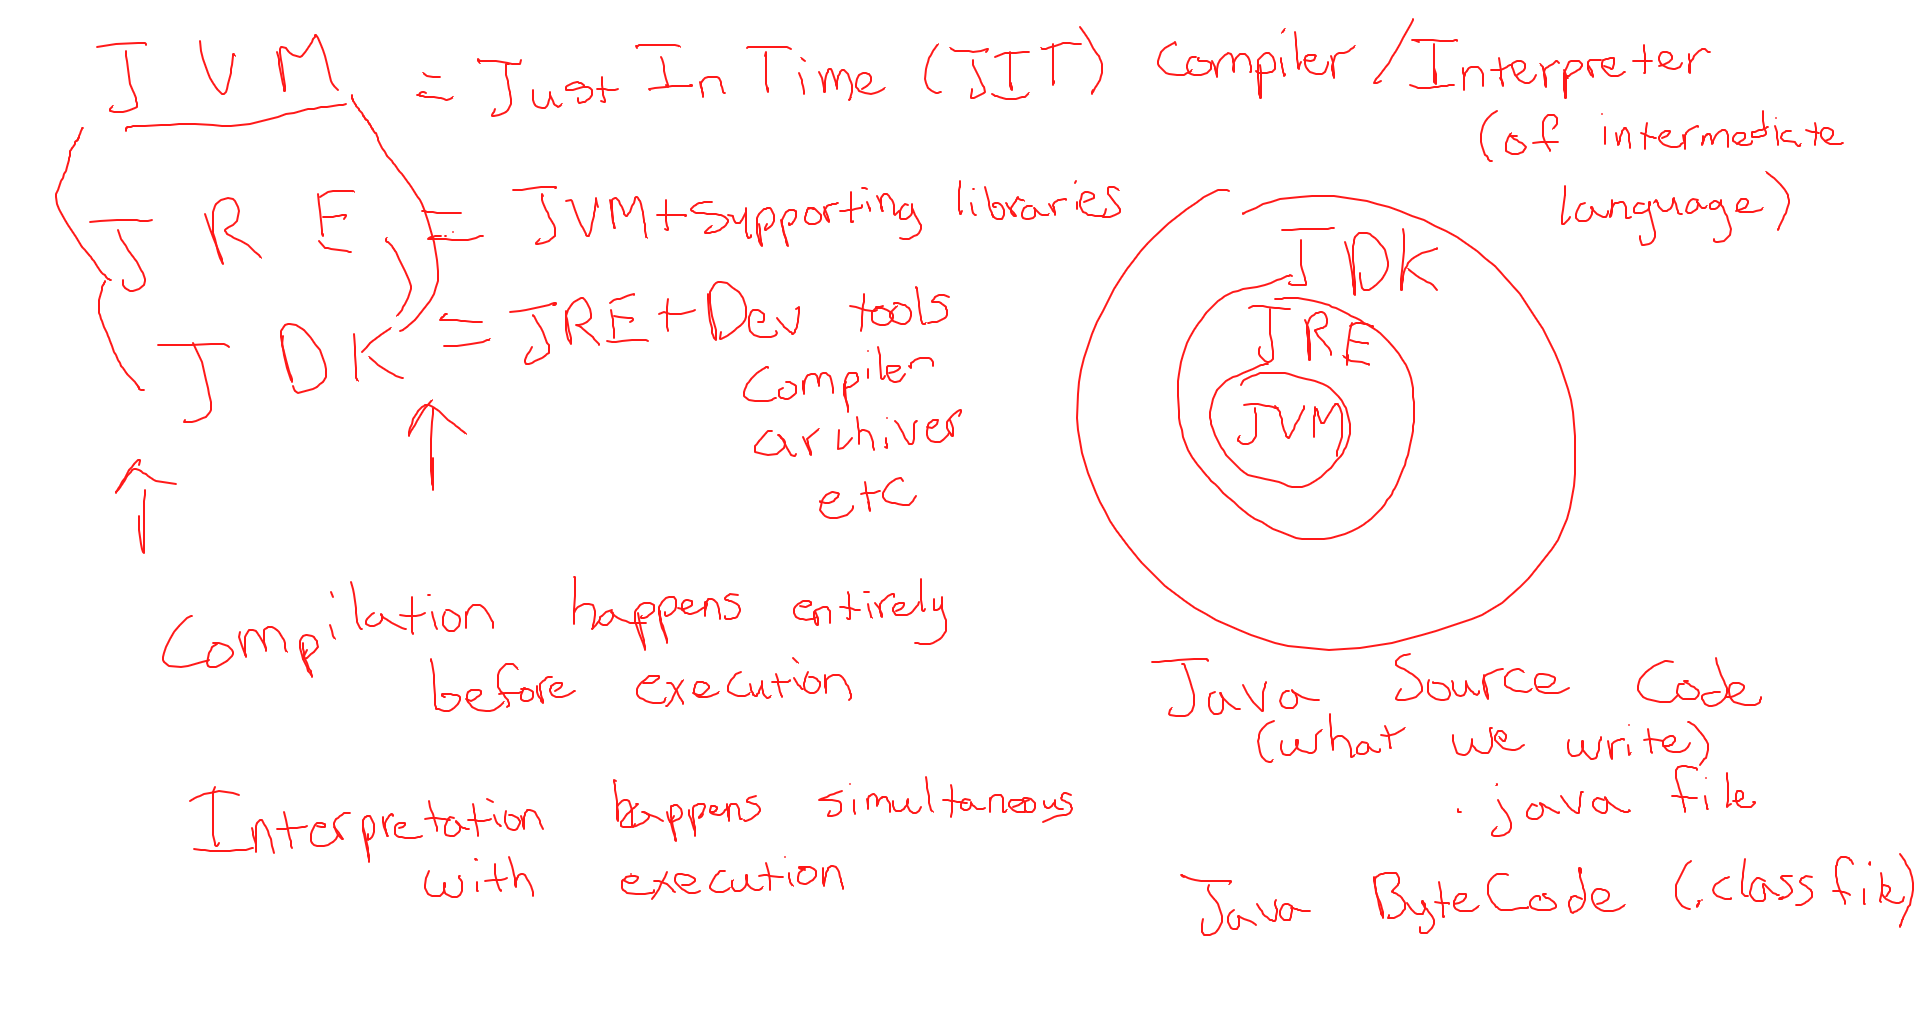 JVM = Just In Time (JIT) Compiler / Interpreter
(of intermediate
language)
JRE = JVM + Supporting libraries
JDK = JRE + Dev tools
Compiler
archiver
etc
JDK
JRE
JVM
Compilation happens entirely
before execution
Interpretation happens simultaneous
with execution
Java Source Code
(what we write)
.java file
Java ByteCode (.class file)